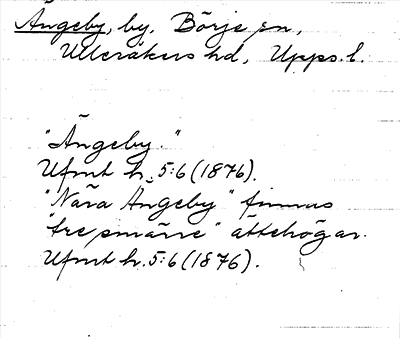 Ängeby, by, Börje sn,
Ulleråkers hd, Upps. l.
"Ängeby."
Ufmt h. 5:6 (1876).
"Nära Ängeby" finnas
"tre smärre" ättehögar.
Ufmt h. 5:6 (1876).